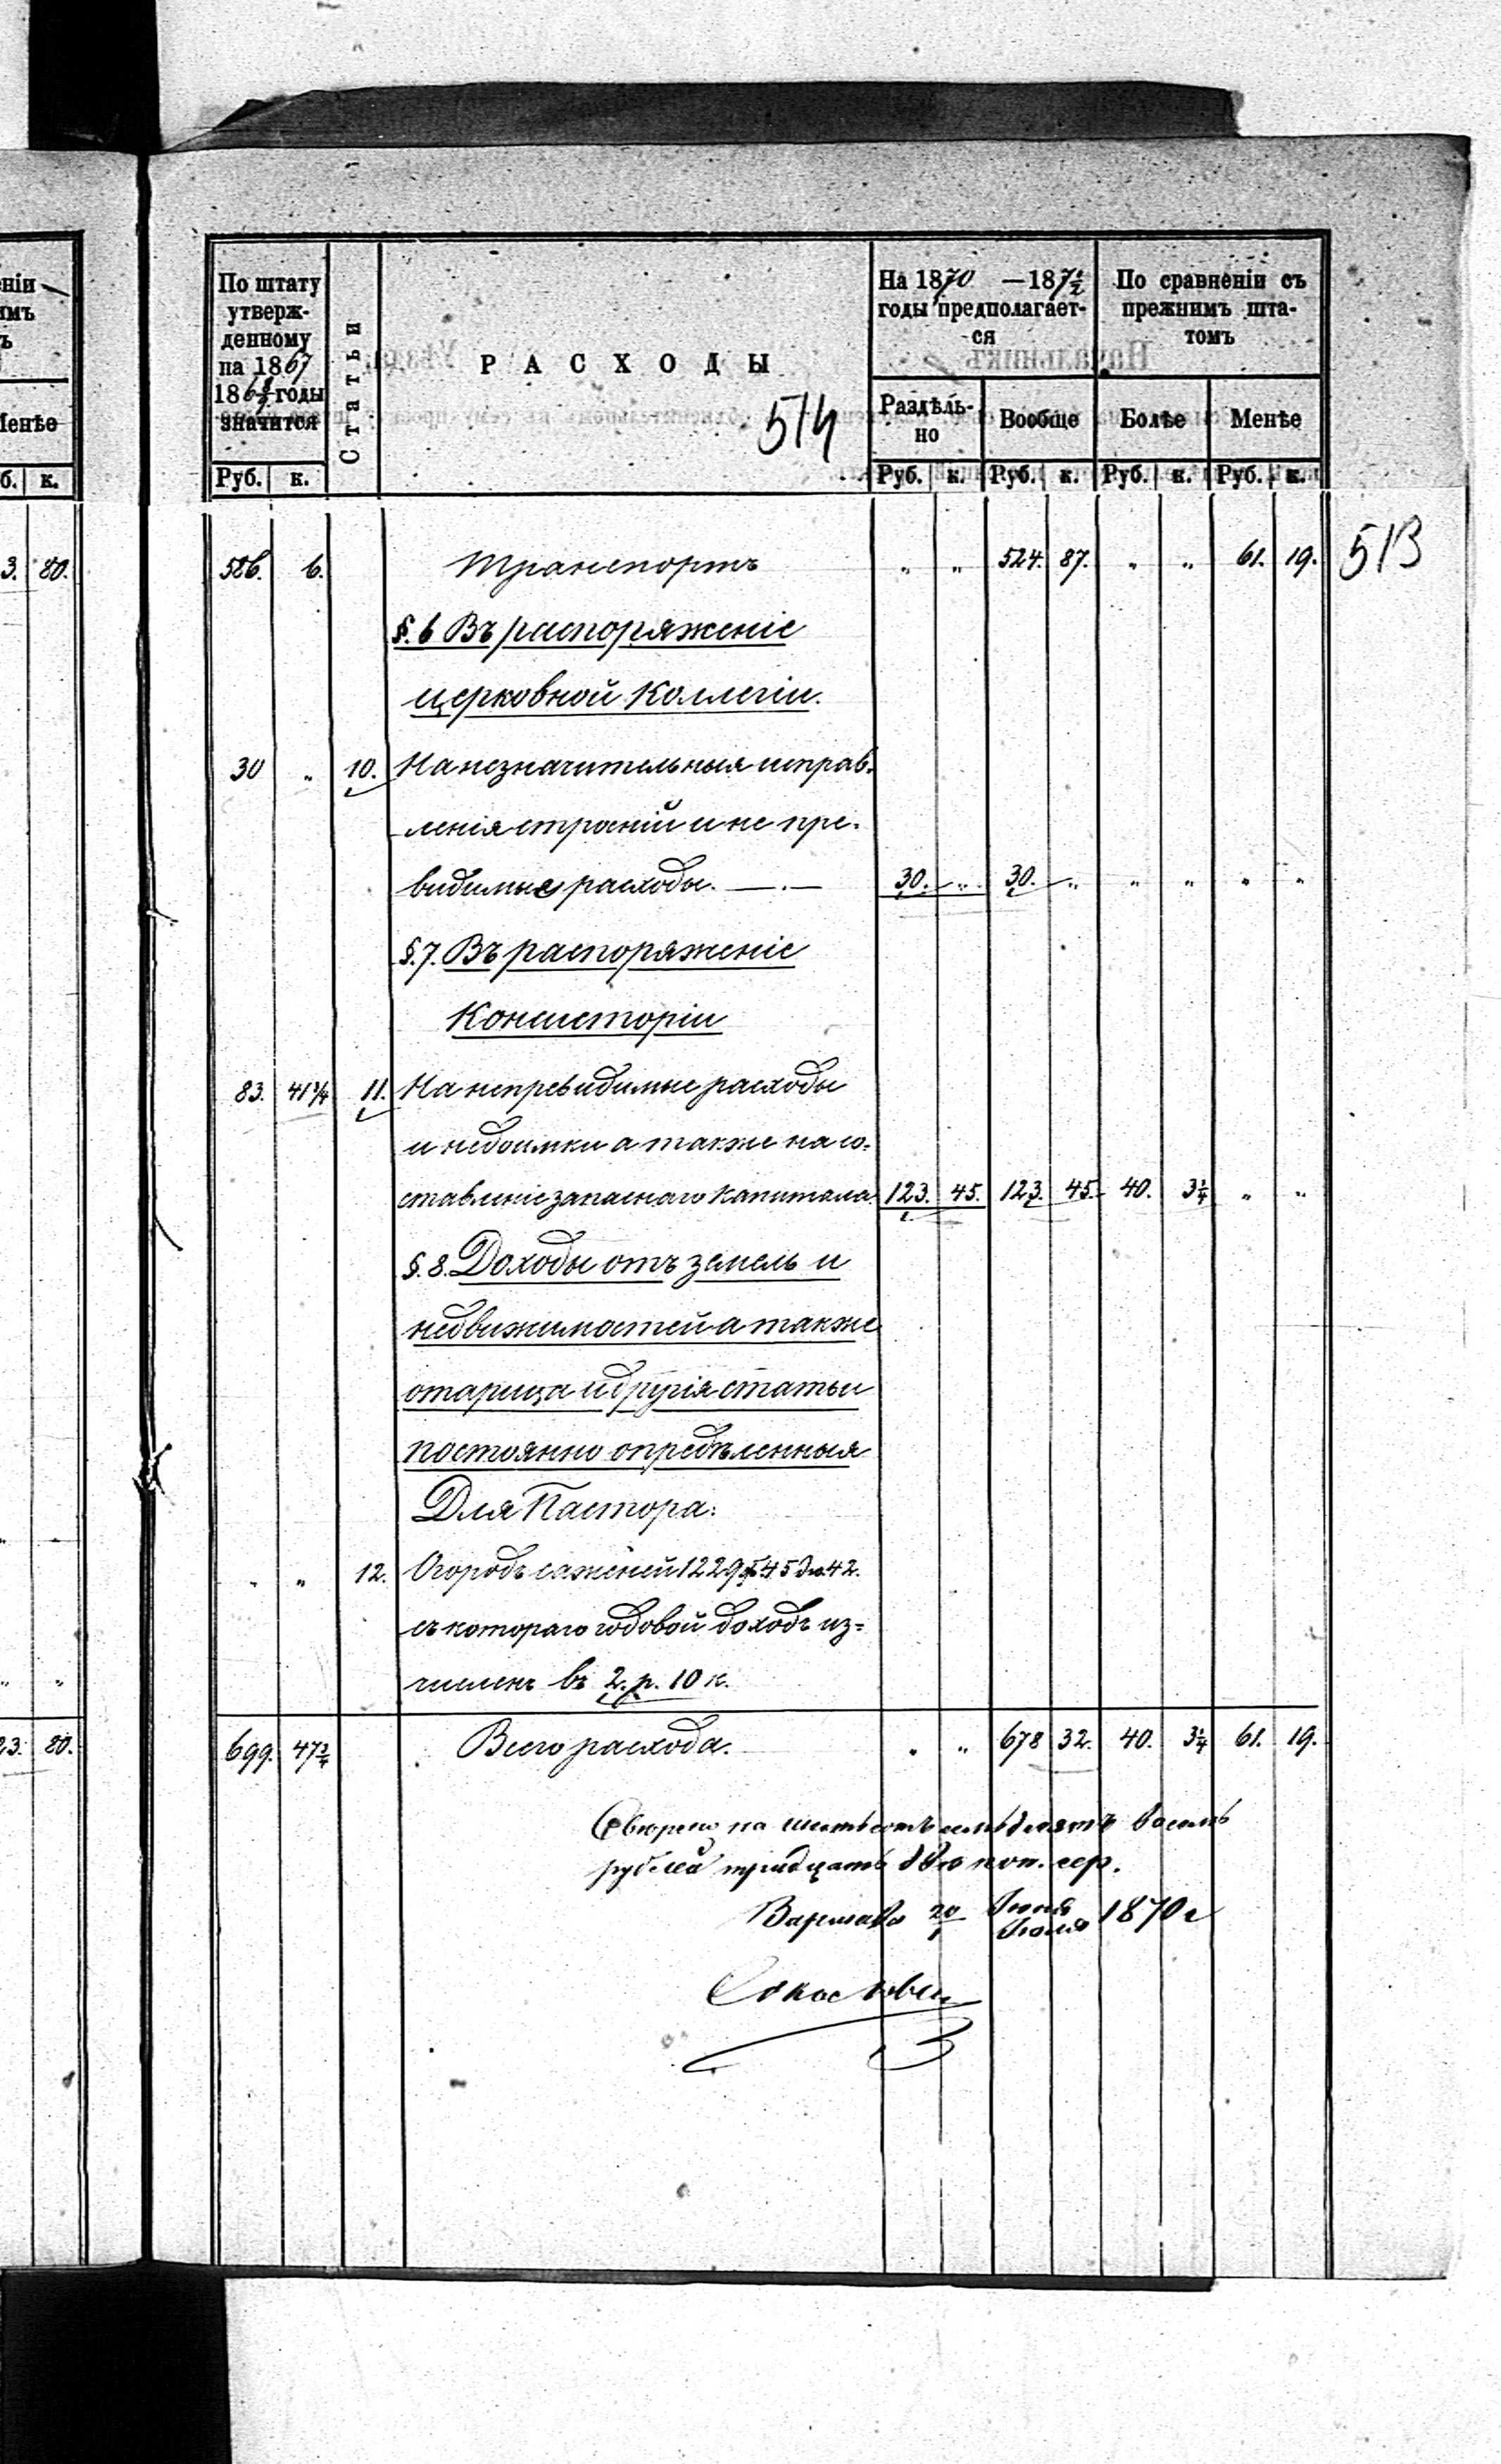 еніи
имъ
ъ
Менѣе
б. к.
3. 80.
" "
23. 80.
По штату утверж-
денному
на 1867
186 8/9 годы
значится
Руб. к.
Статьи
РАСХОДЫ
514
На 1870 — 187 1/2
годы предполагает-
ся
Раздѣль-
но
Вообще
Руб. к. Руб. к.
По сравненіи съ
прежнимъ шта-
томъ
Болѣе Менѣе
Руб. к. Руб. к.
513
586. 6. Транспортъ " " 524. 87. " " 61. 19.
§. 6 Въ распоряженіе
церковной Коллегіи.
30 " 10. На незначительныя исправ-
ленія строній и не пре-
видимые расходы. 30. " 30. " " " " "
§. 7. Въ распоряженіе
Консисторіи
83. 41 3/4 11. На непревидимые расходы
и недоимки а также на со-
ставленіе запаснаго капитала 123. 45. 123. 45. 40. 3 1/4 " "
§. 8. Доходы отъ земель и
недвижимостей а также
отарица и другія статьи
постоянно опредѣленныя
Для Пастора:
" " 12. Огородъ саженей 1229 45 42.
съ котораго годовой доходъ из-
численъ въ 2. р. 10 к.
699. 47 3/4 Всего расхода. " " 678 32. 40. 3 1/4 61. 19.
на шестьсотъ семьдесятъ восемь
рублей тридцать двѣ коп. сер.
Варшава 20/1 Іюня/Іюля 1870 г